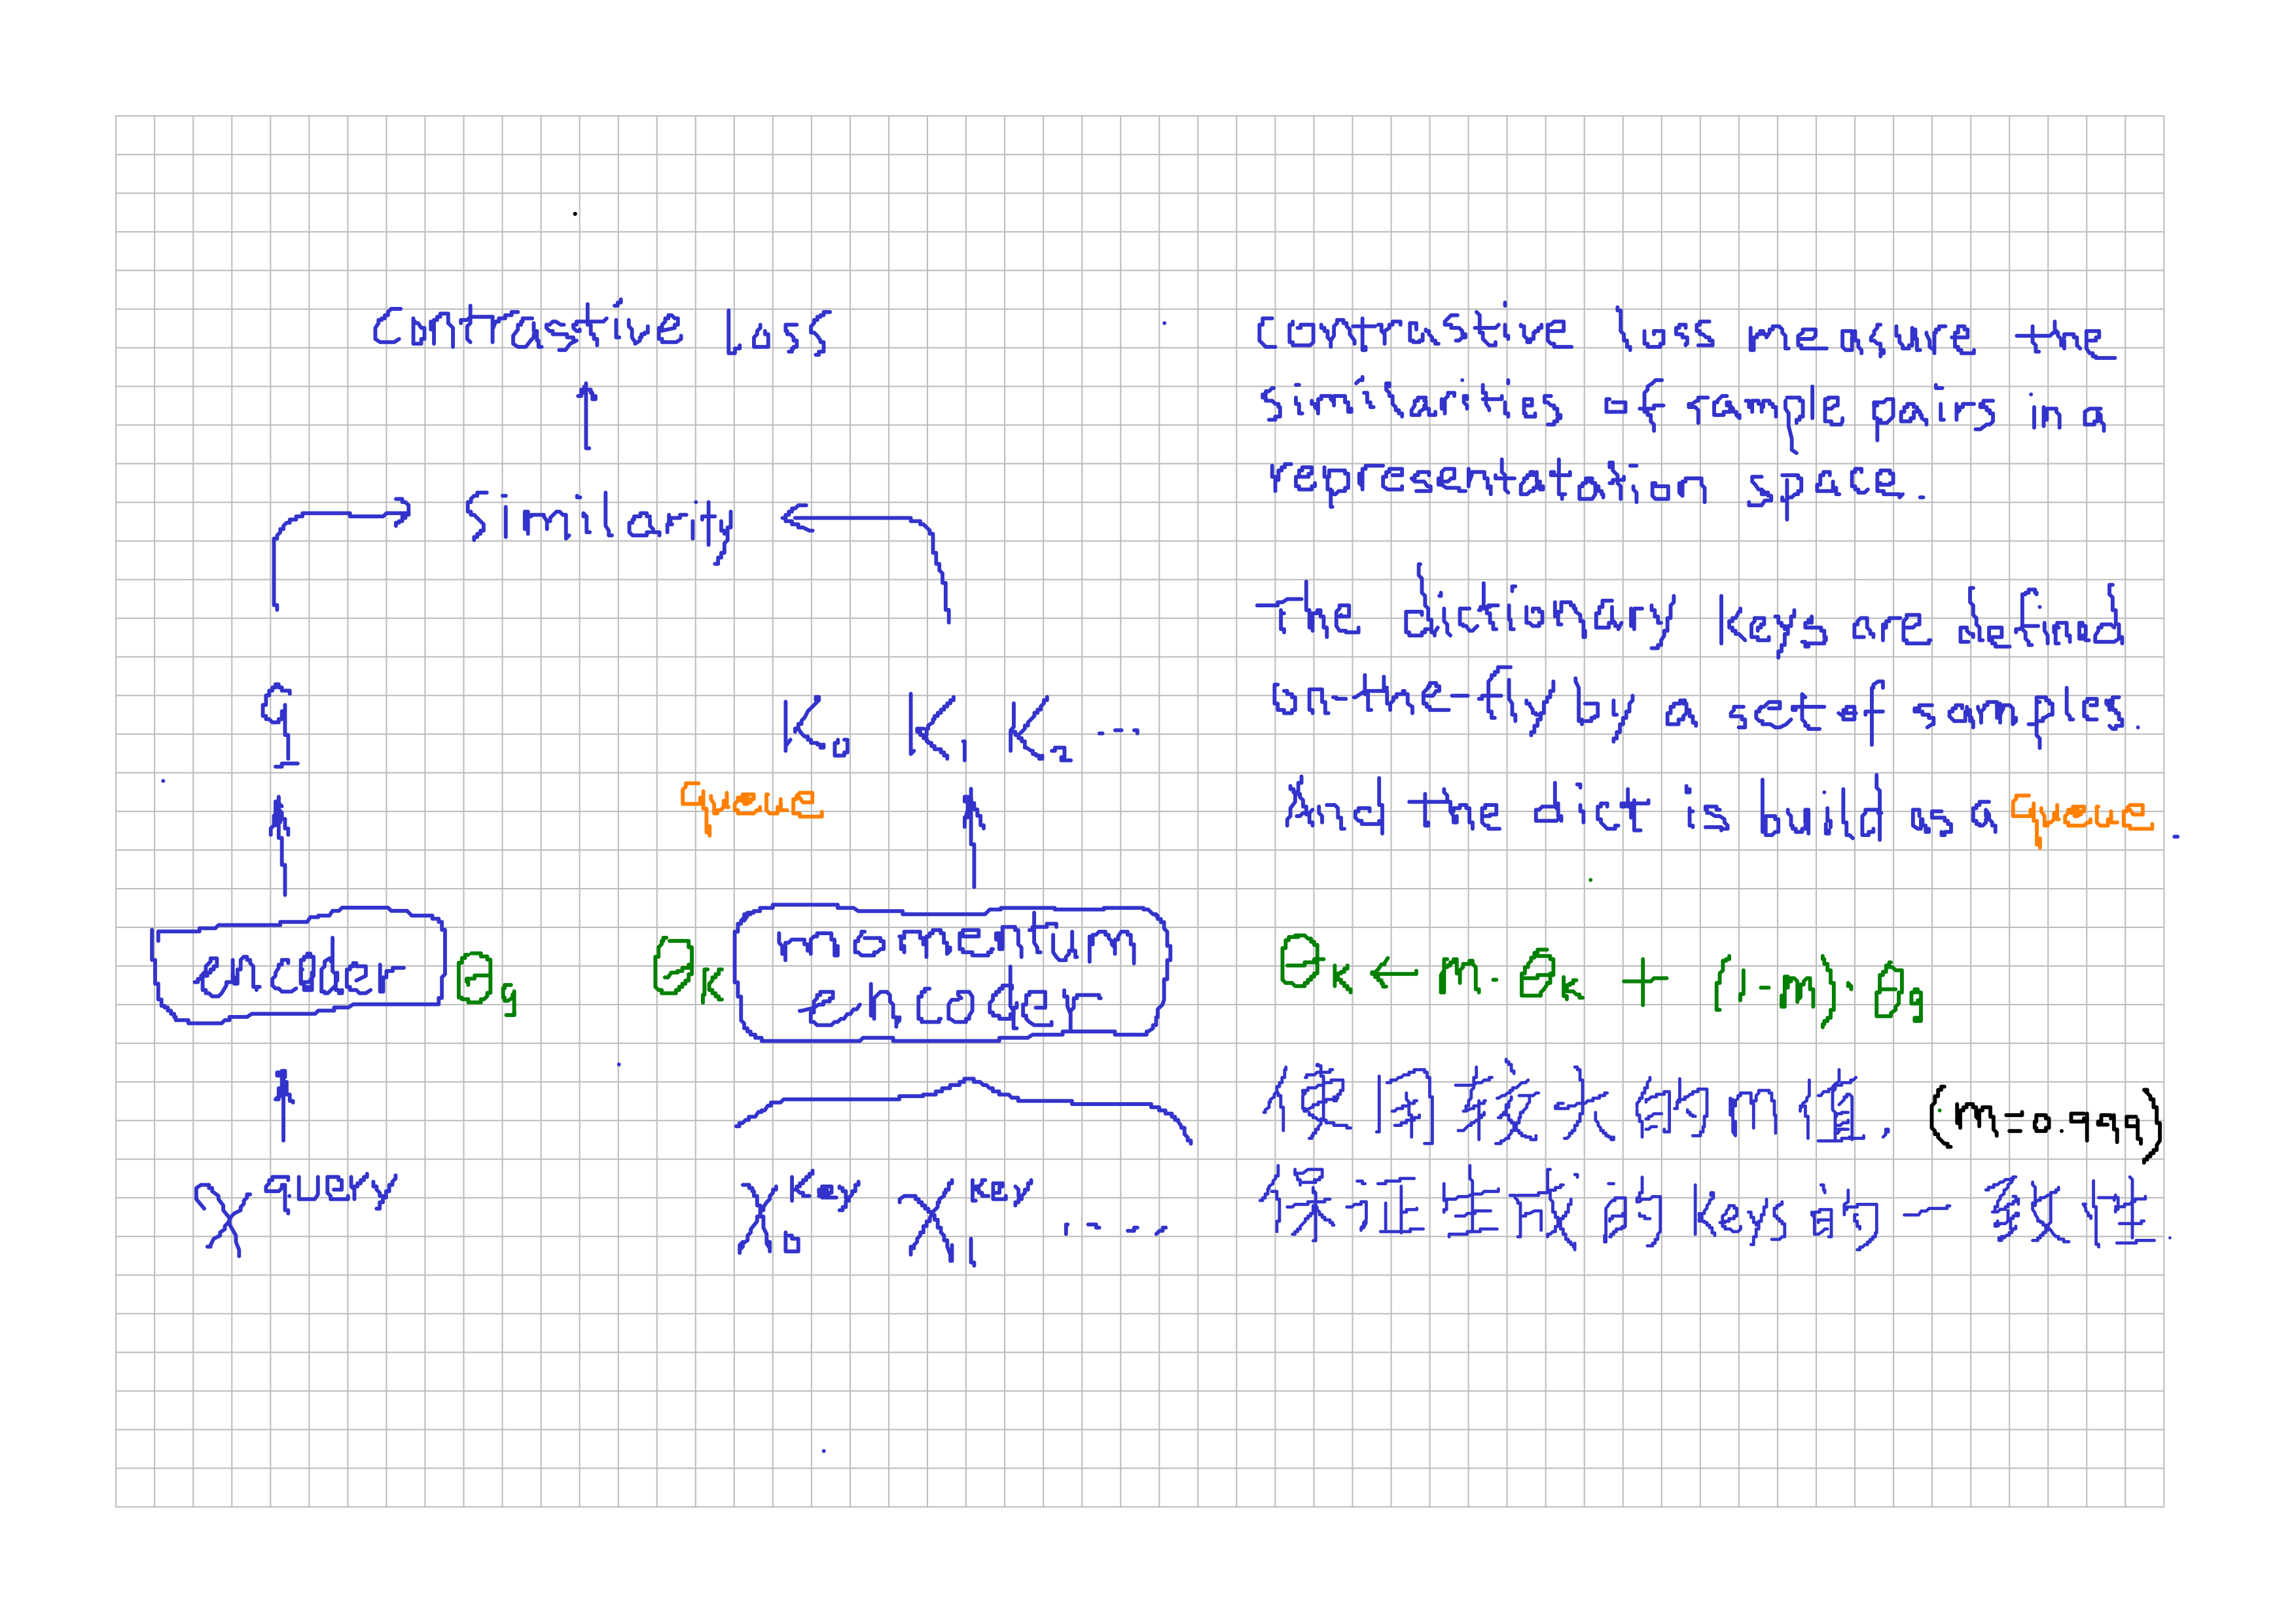 Contrastive Loss
Similarity
q K₀ K₁ K₂ ...
queue
encoder θq θk momentum
encoder
x^query x₀^key x₁^key ....
contrastive loss measure the
similarities of sample pairs in a
representation space.
The dictionary keys are defind
on-the-fly by a set of samples.
And the dict is build as a queue.
θk ← m·θk + (1-m)·θq
使用较大的m值. (m=0.999)
保证生成的keys的一致性.